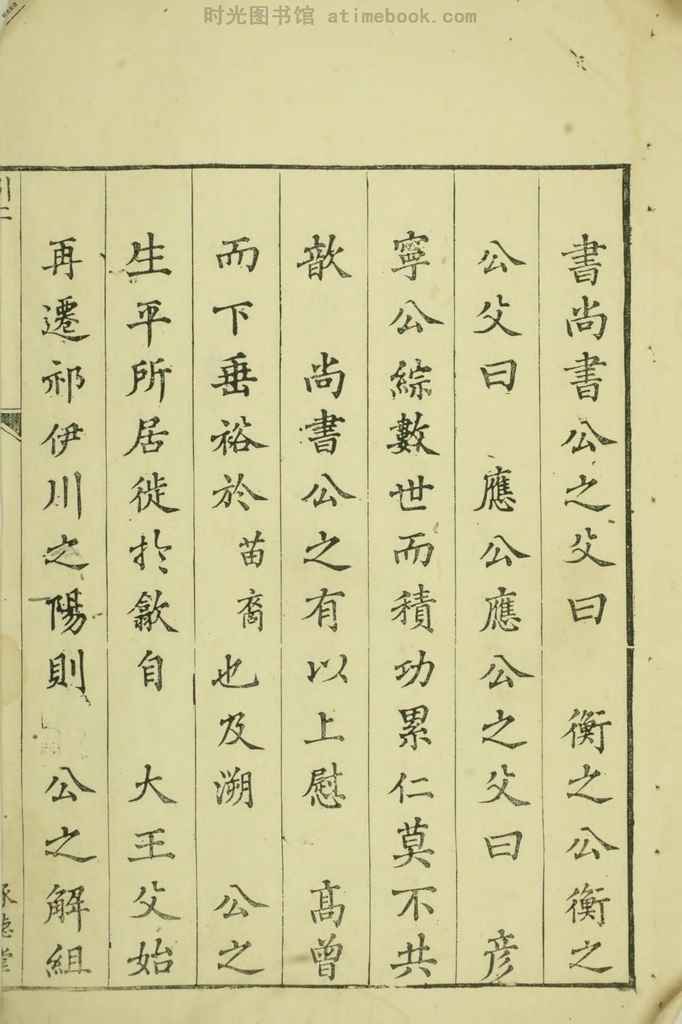 时光图书馆 atimebook.com
書尚書公之父曰 衡之公衡之
公父曰 應公應公之父曰 彦
寧公綜數世而積功累仁莫不共
歆 尚書公之有以上慰 高曾
而下垂裕於苗裔也及溯 公之
生平所居徙於歙自 大王父始
再遷祁伊川之陽則 公之解組